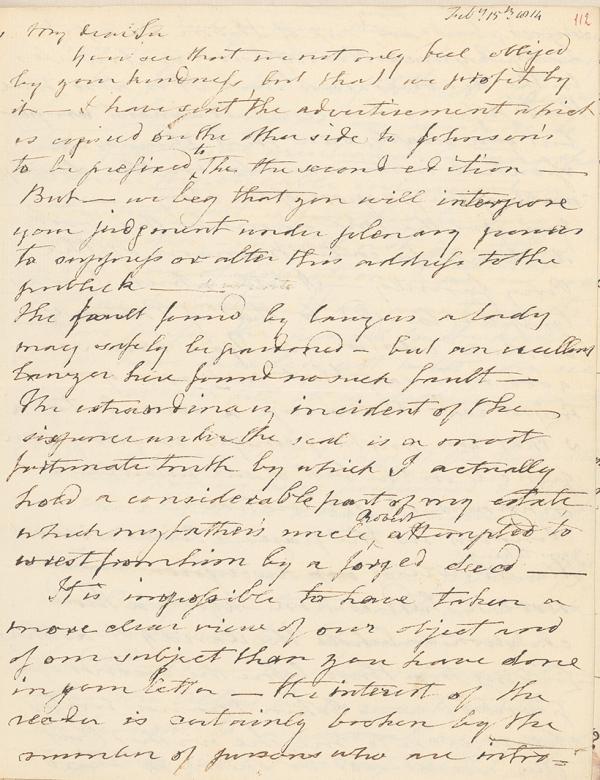 Feby 15th 1814
112
My dear Sir
You see that we not only feel obliged
by your kindness, but that we profit by
it — I have sent the advertisement which
is copied on the other side to Johnson's
to be prefixed to the second edition —
But — we beg that you will interpose
your judgment under plenary powers
to suppress or alter this address to the
publick —
The fault found by lawyers a lady
may safely be pardoned — but an excellent
lawyer here found no such fault —
The extraordinary incident of the
sixpence under the seal is a most
fortunate truth by which I actually
hold a considerable part of my estate
which my father's uncle Robert attempted to
wrest from him by a forged deed —
It is impossible to have taken a
more clear view of our object and
of our subject than you have done
in your letter — the interest of the
reader is certainly broken by the
number of persons who are intro=